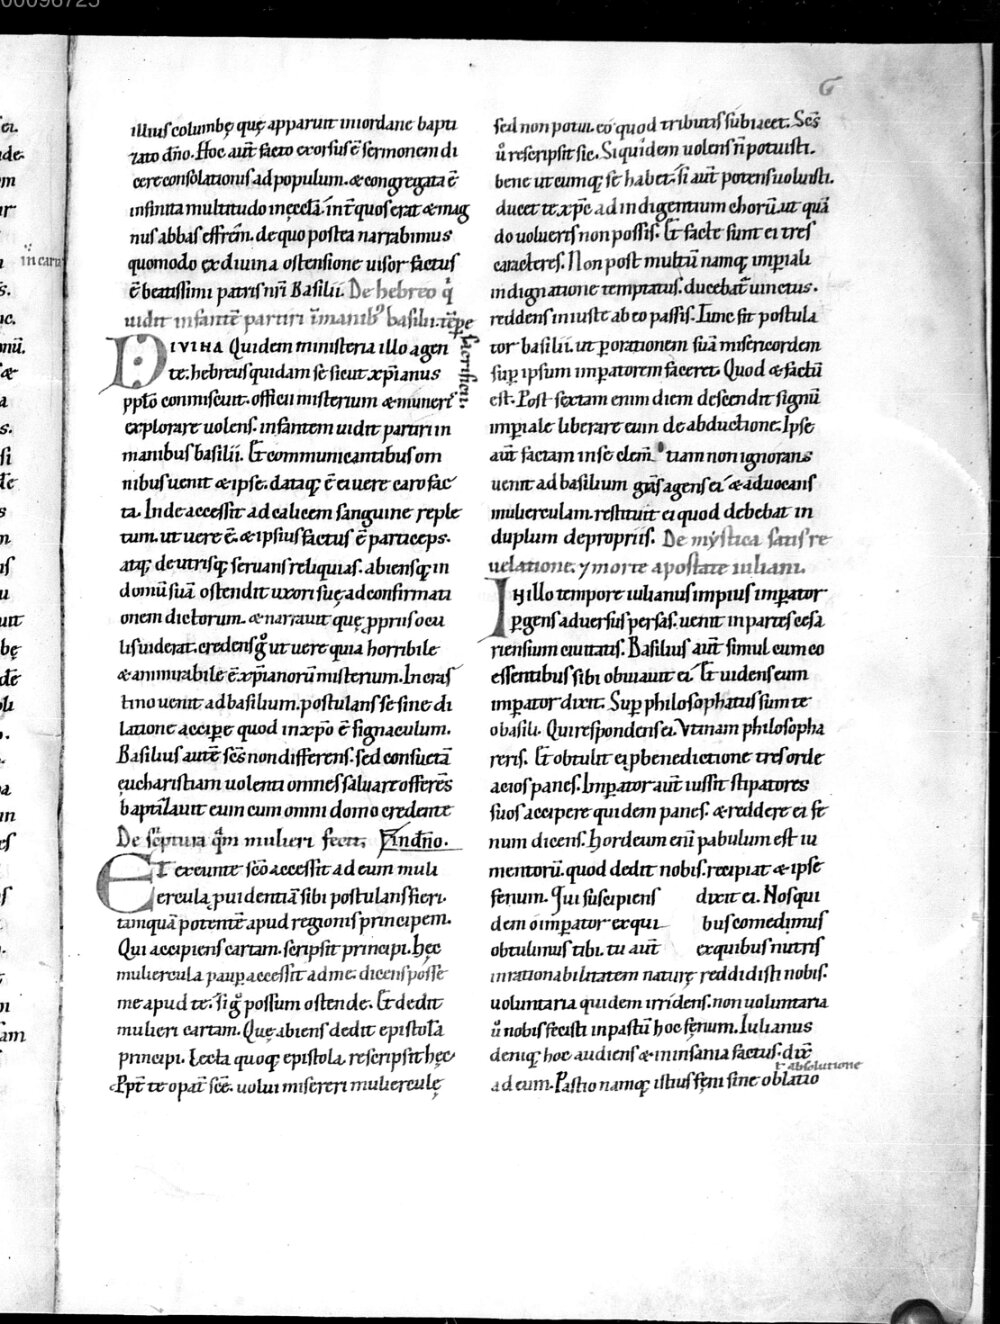 00096725
G
illius columbę quę apparuit in iordane bapti
zato dño. Hoc aut̄ facto exorsus ē sermonem di
cere consolationis ad populum. & congregata ē
infinita multitudo in ęcctā. int̄ quos erat & mag
nus abbas effrēm. de quo postea narrabimus
quomodo ex divina ostensione uisor factus
ē beatissimi patris nr̄i Basilii. De hebreo q̇
uidit infantē partiri ī manib; basilii. tēpe
sacrificii.
DIVINA Quidem ministeria illo agen
te. hebreus quidam se sicut xp̄ianus
pplo conmiscuit. officii misterium & muneris
explorare uolens. infantem uidit partiri in
manibus basilii. Et communicantibus om
nibus uenit & ipse. dataq; ē ei uere caro fac
ta. Inde accessit ad calicem sanguine reple
tum. ut uere ē. & ipsius factus ē particeps.
atq; de utrisq; seruans reliquias. abiensq; in
domū suā ostendit uxori suę ad confirmati
onem dictorum. & narrauit quę ppriis ocu
lis uiderat. credens g̊ ut uere quia horribile
& ammirabile ē xp̄ianorū misterium. In cras
tino uenit ad basilium. postulans se sine di
latione accipe quod in xp̄o ē signaculum.
Basilius autē scs̄ non differens. sed consuetā
eucharistiam uolenti omnes saluari offerēs
baptizauit eum cum omni domo credente
in dño.
De scptura qm mulieri fecit
ET exeunte scō accessit ad eum muli
ercula puidentiā sibi postulans fieri.
tamquā potentē apud regionis principem.
Qui accipiens cartam. scripsit principi. hęc
muliercula paup accessit ad me. dicens posse
me apud te. Si g̊ possum ostende. Et dedit
mulieri cartam. Quę abiens dedit epistolā
principi. Lecta quoq; epistola. rescripsit hęc
Ppt̄ te opat̄ scē. uolui misereri mulierculę
sed non potui. eo quod tributis subiacet. Scs̄
ů rescripsit sic. Si quidem uolens n̄ potuisti.
bene utcumq; se habet. si aut̄ potens uoluisti.
ducet te xp̄c ad indigentium chorū. ut quā
do uolueris non possis. Et facte sunt ei tres
caracteres. Non post multū namq; impiali
indignatione temptatus. ducebat̄ uinctus.
reddens iniuste ab eo passis. Tunc fit postula
tor basilii. ut p orationem suā misericordem
sup ipsum impatorem faceret. Quod & factū
est. Post sextam enim diem descendit signū
impiale liberare eum de abductione. Ipse
aut̄ factam in se clem tiam non ignorans
uenit ad basilium grās agens ei & aduocans
mulierculam. restituit ei quod debebat in
duplum de propriis. De mystica sanīs re
uelatione. & morte apostate iuliani.
IN illo tempore iulianus impius impator
pgens aduersus persas. uenit in partes cesa
riensium ciuitatis. Basilius aut̄ simul cum eo
essentibus sibi obuiauit ei. Et uidens eum
impator dixit. Sup philosophatus sum te
o basili. Qui respondens ei. Vtinam philosopha
reris. Et obtulit ei p benedictione tres orde
acios panes. Impator aut̄ iussit stipatores
suos accipere quidem panes. & reddere ei fe
num dicens. Hordeum enī pabulum est iu
mentorū. quod dedit nobis. recipiat & ipse
fenum. Qui suscipiens dixit ei. Nos qui
dem o impator ex qui bus comedimus
obtulimus tibi. tu aut̄ ex quibus nutris
inrationabilitatem naturę reddidisti nobis.
uoluntaria quidem irridens. non uoluntaria
ů nobis fecisti in pastū hoc fęnum. Iulianus
deniq; hoc audiens & in insania factus. dix̄
ł absolutione
ad eum. Pastio namq; istius fęni sine oblatio